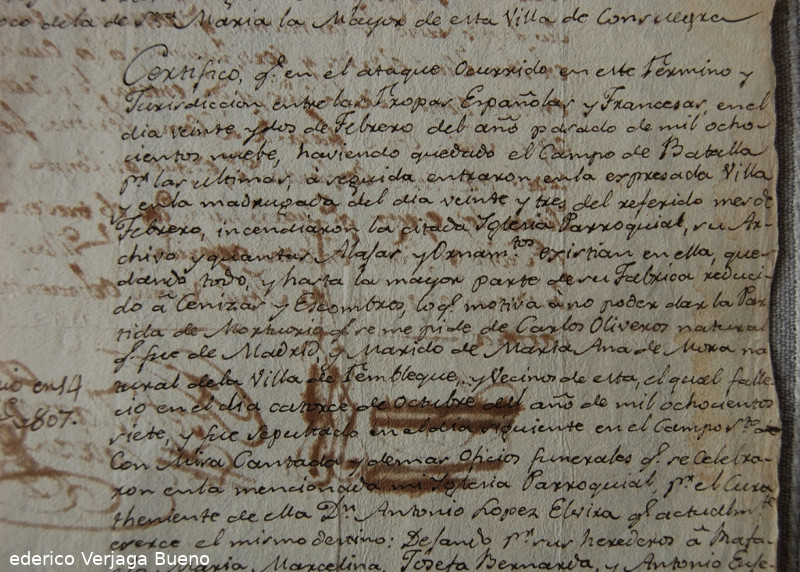 oco de la de Sta. Maria la Mayor de esta Villa de Consuegra
Certifico, qe. en el ataque ocurrido en este Termino y
Jurisdiccion entre las Tropas Españolas y Francesas, en el
dia veinte y dos de Febrero del año pasado de mil ocho-
cientos nuebe, haviendo quedado el Campo de Batalla
pr. las ultimas, á seguida entraron en la expresada Villa
y en la madrugada del dia veinte y tres del referido mes de
Febrero, incendiaron la citada Iglesia Parroquial, su Ar-
chivo y quantas Alajas y Ornamtos. existian en ella, que-
dando todo, y hasta la mayor parte de su Fabrica reduci-
do á Cenizas y Escombros, lo qe. motiva á no poder dar la Par-
tida de Mortuorio qe. se me pide de Carlos Oliveros natural
qe. fue de Madrid, y Marido de Maria Ana de Mora na-
tural de la Villa de Tembleque, y Vecinos de esta, el qual falle-
cio en el dia catorce de Octubre del año de mil ochocientos
siete, y fue sepultado en el dia siguiente en el Campo Sto. de
Con Misa Cantada y demas Oficios funerales qe. se celebra-
ron en la mencionada mi Iglesia Parroquial, pr. el Cura
theniente de ella Dn. Antonio Lopez Elvira qe. actualmte.
exerce el mismo destino: Dejando pr. sus herederos á Rafa-
Maria, Marcelina, Josefa Bernarda, y Antonio Euse-
io en 14
1807.
ederico Verjaga Bueno